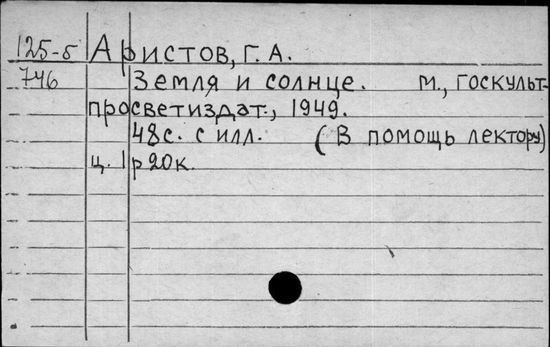 125-5 Аристов, Г. А.
746 Земля и солнце. М., Госкульт-
просветиздат, 1949.
48с. с илл. (В помощь лектору)
ц. 1р 20к.